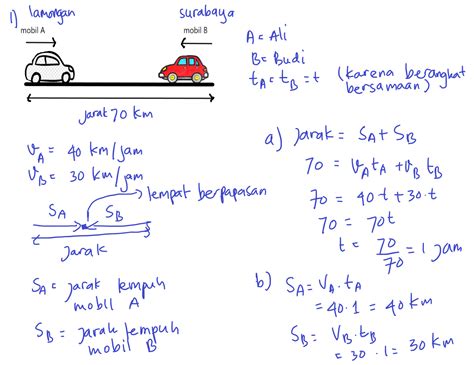 1) lamongan
surabaya
mobil A
mobil B
jarak 70 km
V_A = 40 km/jam
V_B = 30 km/jam
tempat berpapasan
S_A S_B
Jarak
S_A = jarak tempuh
mobil A
S_B = jarak tempuh
mobil B
A = Ali
B = Budi
t_A = t_B = t (karena berangkat
bersamaan)
a) Jarak = S_A + S_B
70 = V_A t_A + V_B t_B
70 = 40·t + 30·t
70 = 70t
t = 70/70 = 1 jam
b) S_A = V_A · t_A
= 40·1 = 40 km
S_B = V_B · t_B
= 30 · 1 = 30 km